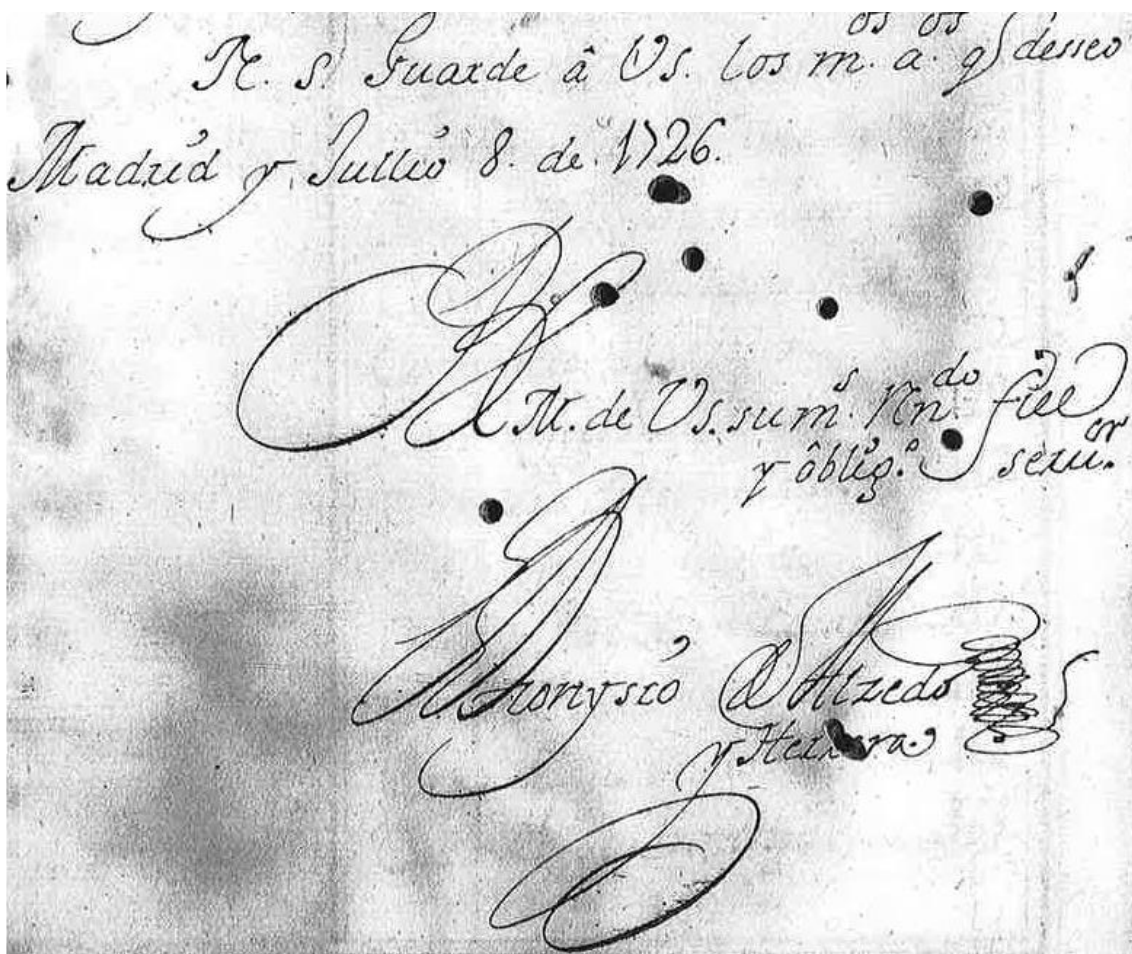 N. S. Guarde â Vs. los m.os a.os q deseo
Madrid y Jullio 8. de 1726.
M. de Vs. su m.s Rn.do fiel
y ôblig.o seru.or
Dionysio de Alzedo
y Herrera